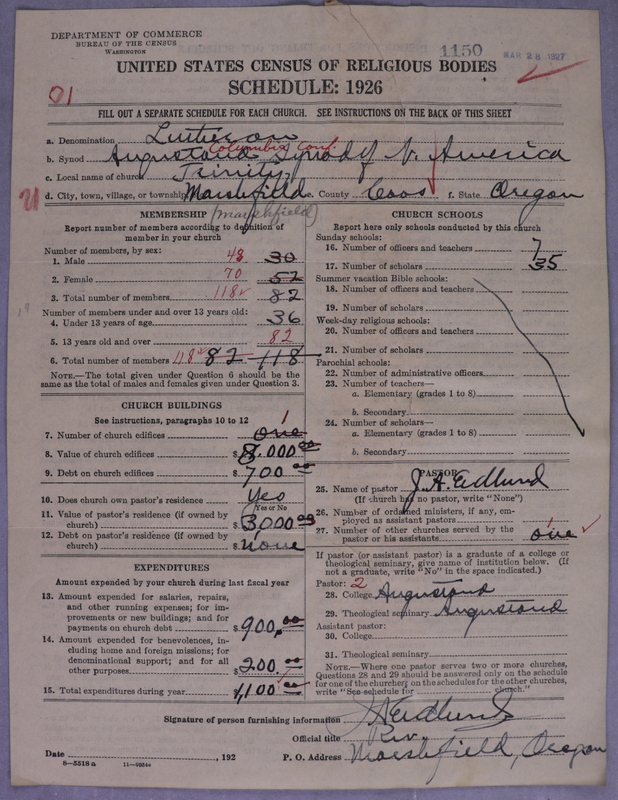 DEPARTMENT OF COMMERCE
BUREAU OF THE CENSUS
WASHINGTON
1150
MAR 28 1927
UNITED STATES CENSUS OF RELIGIOUS BODIES
SCHEDULE: 1926
01
FILL OUT A SEPARATE SCHEDULE FOR EACH CHURCH. SEE INSTRUCTIONS ON THE BACK OF THIS SHEET
a. Denomination Lutheran
Columbia Conf.
b. Synod Augustana Synod of N. America
c. Local name of church Trinity
d. City, town, village, or township Marshfield e. County Coos f. State Oregon
MEMBERSHIP (Marshfield)
Report number of members according to definition of
member in your church
Number of members, by sex:
1. Male 48 30
2. Female 70 52
3. Total number of members 118 82
Number of members under and over 13 years old:
4. Under 13 years of age 36
5. 13 years old and over 82
6. Total number of members 118 82 118
NOTE.—The total given under Question 6 should be the
same as the total of males and females given under Question 3.
CHURCH BUILDINGS
See instructions, paragraphs 10 to 12
1
7. Number of church edifices one
8. Value of church edifices $8,000 00
9. Debt on church edifices $700 00
10. Does church own pastor's residence Yes
Yes or No
11. Value of pastor's residence (if owned by
church) $3000 00
12. Debt on pastor's residence (if owned by
church) $none
EXPENDITURES
Amount expended by your church during last fiscal year
13. Amount expended for salaries, repairs,
and other running expenses; for im-
provements or new buildings; and for
payments on church debt $900,00
14. Amount expended for benevolences, in-
cluding home and foreign missions; for
denominational support; and for all
other purposes $200.00
15. Total expenditures during year $1,100 00
CHURCH SCHOOLS
Report here only schools conducted by this church
Sunday schools:
16. Number of officers and teachers 7
17. Number of scholars 35
Summer vacation Bible schools:
18. Number of officers and teachers
19. Number of scholars
Week-day religious schools:
20. Number of officers and teachers
21. Number of scholars
Parochial schools:
22. Number of administrative officers
23. Number of teachers—
a. Elementary (grades 1 to 8)
b. Secondary
24. Number of scholars—
a. Elementary (grades 1 to 8)
b. Secondary
PASTOR
25. Name of pastor J. A. Edlund
(If church has no pastor, write "None")
26. Number of ordained ministers, if any, em-
ployed as assistant pastors
27. Number of other churches served by the
pastor or his assistants one
If pastor (or assistant pastor) is a graduate of a college or
theological seminary, give name of institution below. (If
not a graduate, write "No" in the space indicated.)
Pastor: 2
28. College Augustana
29. Theological seminary Augustana
Assistant pastor:
30. College
31. Theological seminary
NOTE.—Where one pastor serves two or more churches,
Questions 28 and 29 should be answered only on the schedule
for one of the churches; on the schedules for the other churches,
write "See schedule for church."
Signature of person furnishing information J A Edlund
Official title Rev.
Date , 192 P. O. Address Marshfield, Oregon
8—5518 a